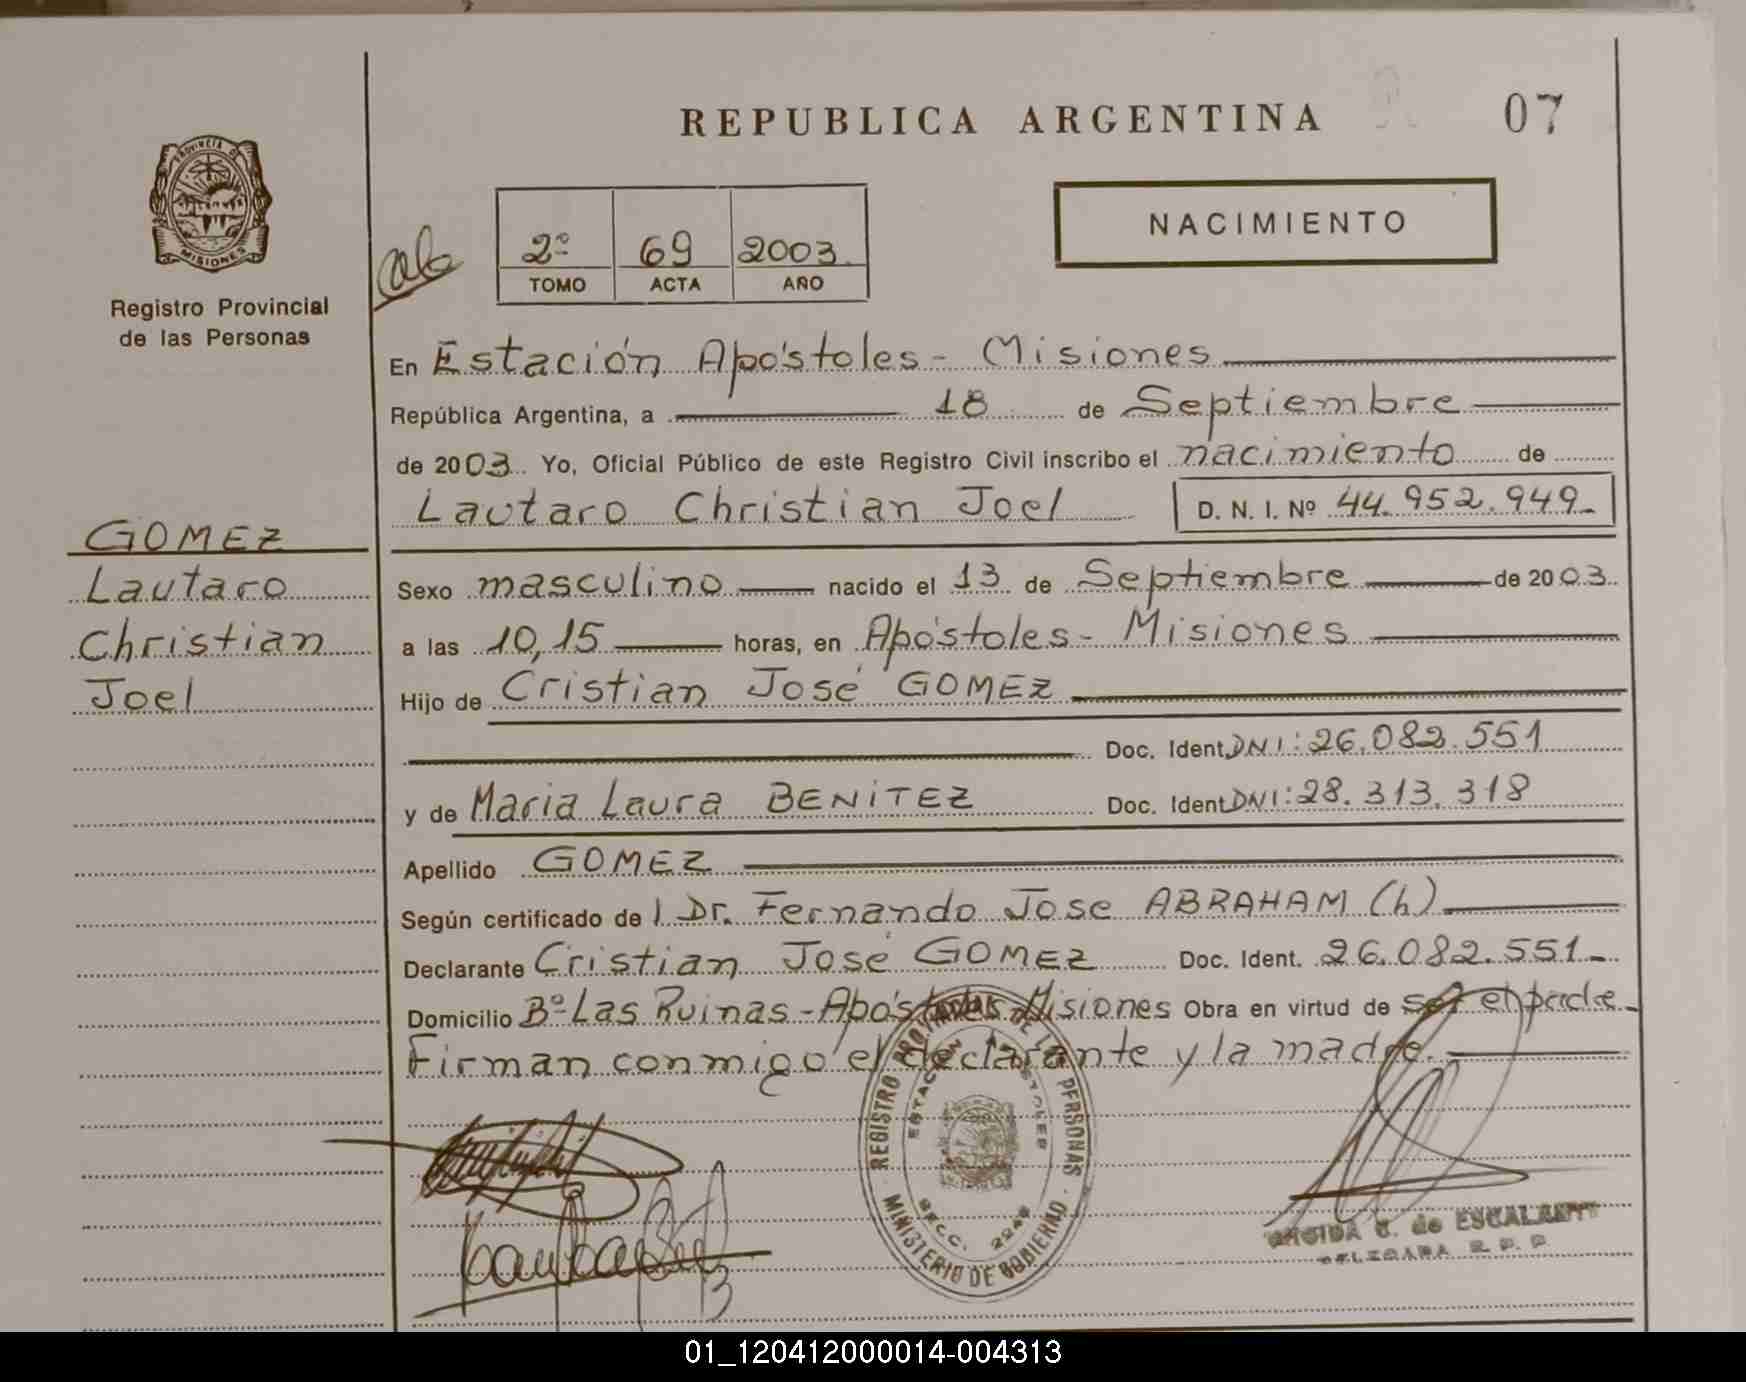 REPUBLICA ARGENTINA
07
PROVINCIA DE
MISIONES
Registro Provincial
de las Personas
2º 69 2003
TOMO ACTA AÑO
NACIMIENTO
En Estación Apóstoles - Misiones
República Argentina, a 18 de Septiembre
de 2003. Yo, Oficial Público de este Registro Civil inscribo el nacimiento de
Lautaro Christian Joel D. N. I. Nº 44.952.949-
GOMEZ
Lautaro
Christian
Joel
Sexo masculino nacido el 13 de Septiembre de 2003.
a las 10,15 horas, en Apóstoles - Misiones
Hijo de Cristian José GOMEZ
Doc. Ident. DNI: 26.082.551
y de Maria Laura BENiTEZ Doc. Ident. DNI: 28.313.318
Apellido GOMEZ
Según certificado de l Dr. Fernando Jose ABRAHAM (h)
Declarante Cristian José GOMEZ Doc. Ident. 26.082.551-
Domicilio Bº Las Ruinas - Apóstoles Misiones Obra en virtud de ser el padre
Firman conmigo el declarante y la madre.
REGISTRO PROVINCIAL DE LAS PERSONAS
ESTACION APOSTOLES
SECC. 2248
MINISTERIO DE GOBIERNO
C. de ESCALANTE
DELEGADA R. P. P.
01_120412000014-004313